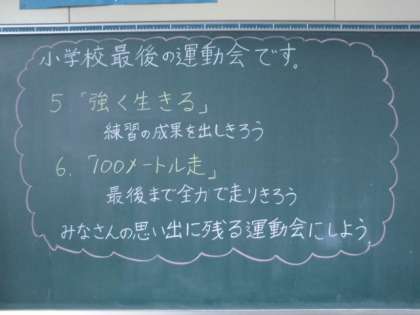 小学校最後の運動会です。
5 「強く生きる」
練習の成果を出しきろう
6. 「100メートル走」
最後まで全力で走りきろう
みなさんの思い出に残る運動会にしよう